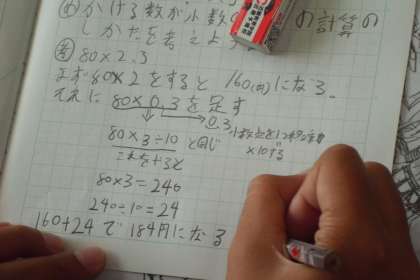 かける数が小数の の計算の
しかたを考えよう
考 80×2.3
まず80×2をすると 160(円)になる。
それに 80×0.3を足す
0.3
80×3÷10 と同じ
×10する
これをするとと
80×3=240
240÷10=24
160+24で 184円になる